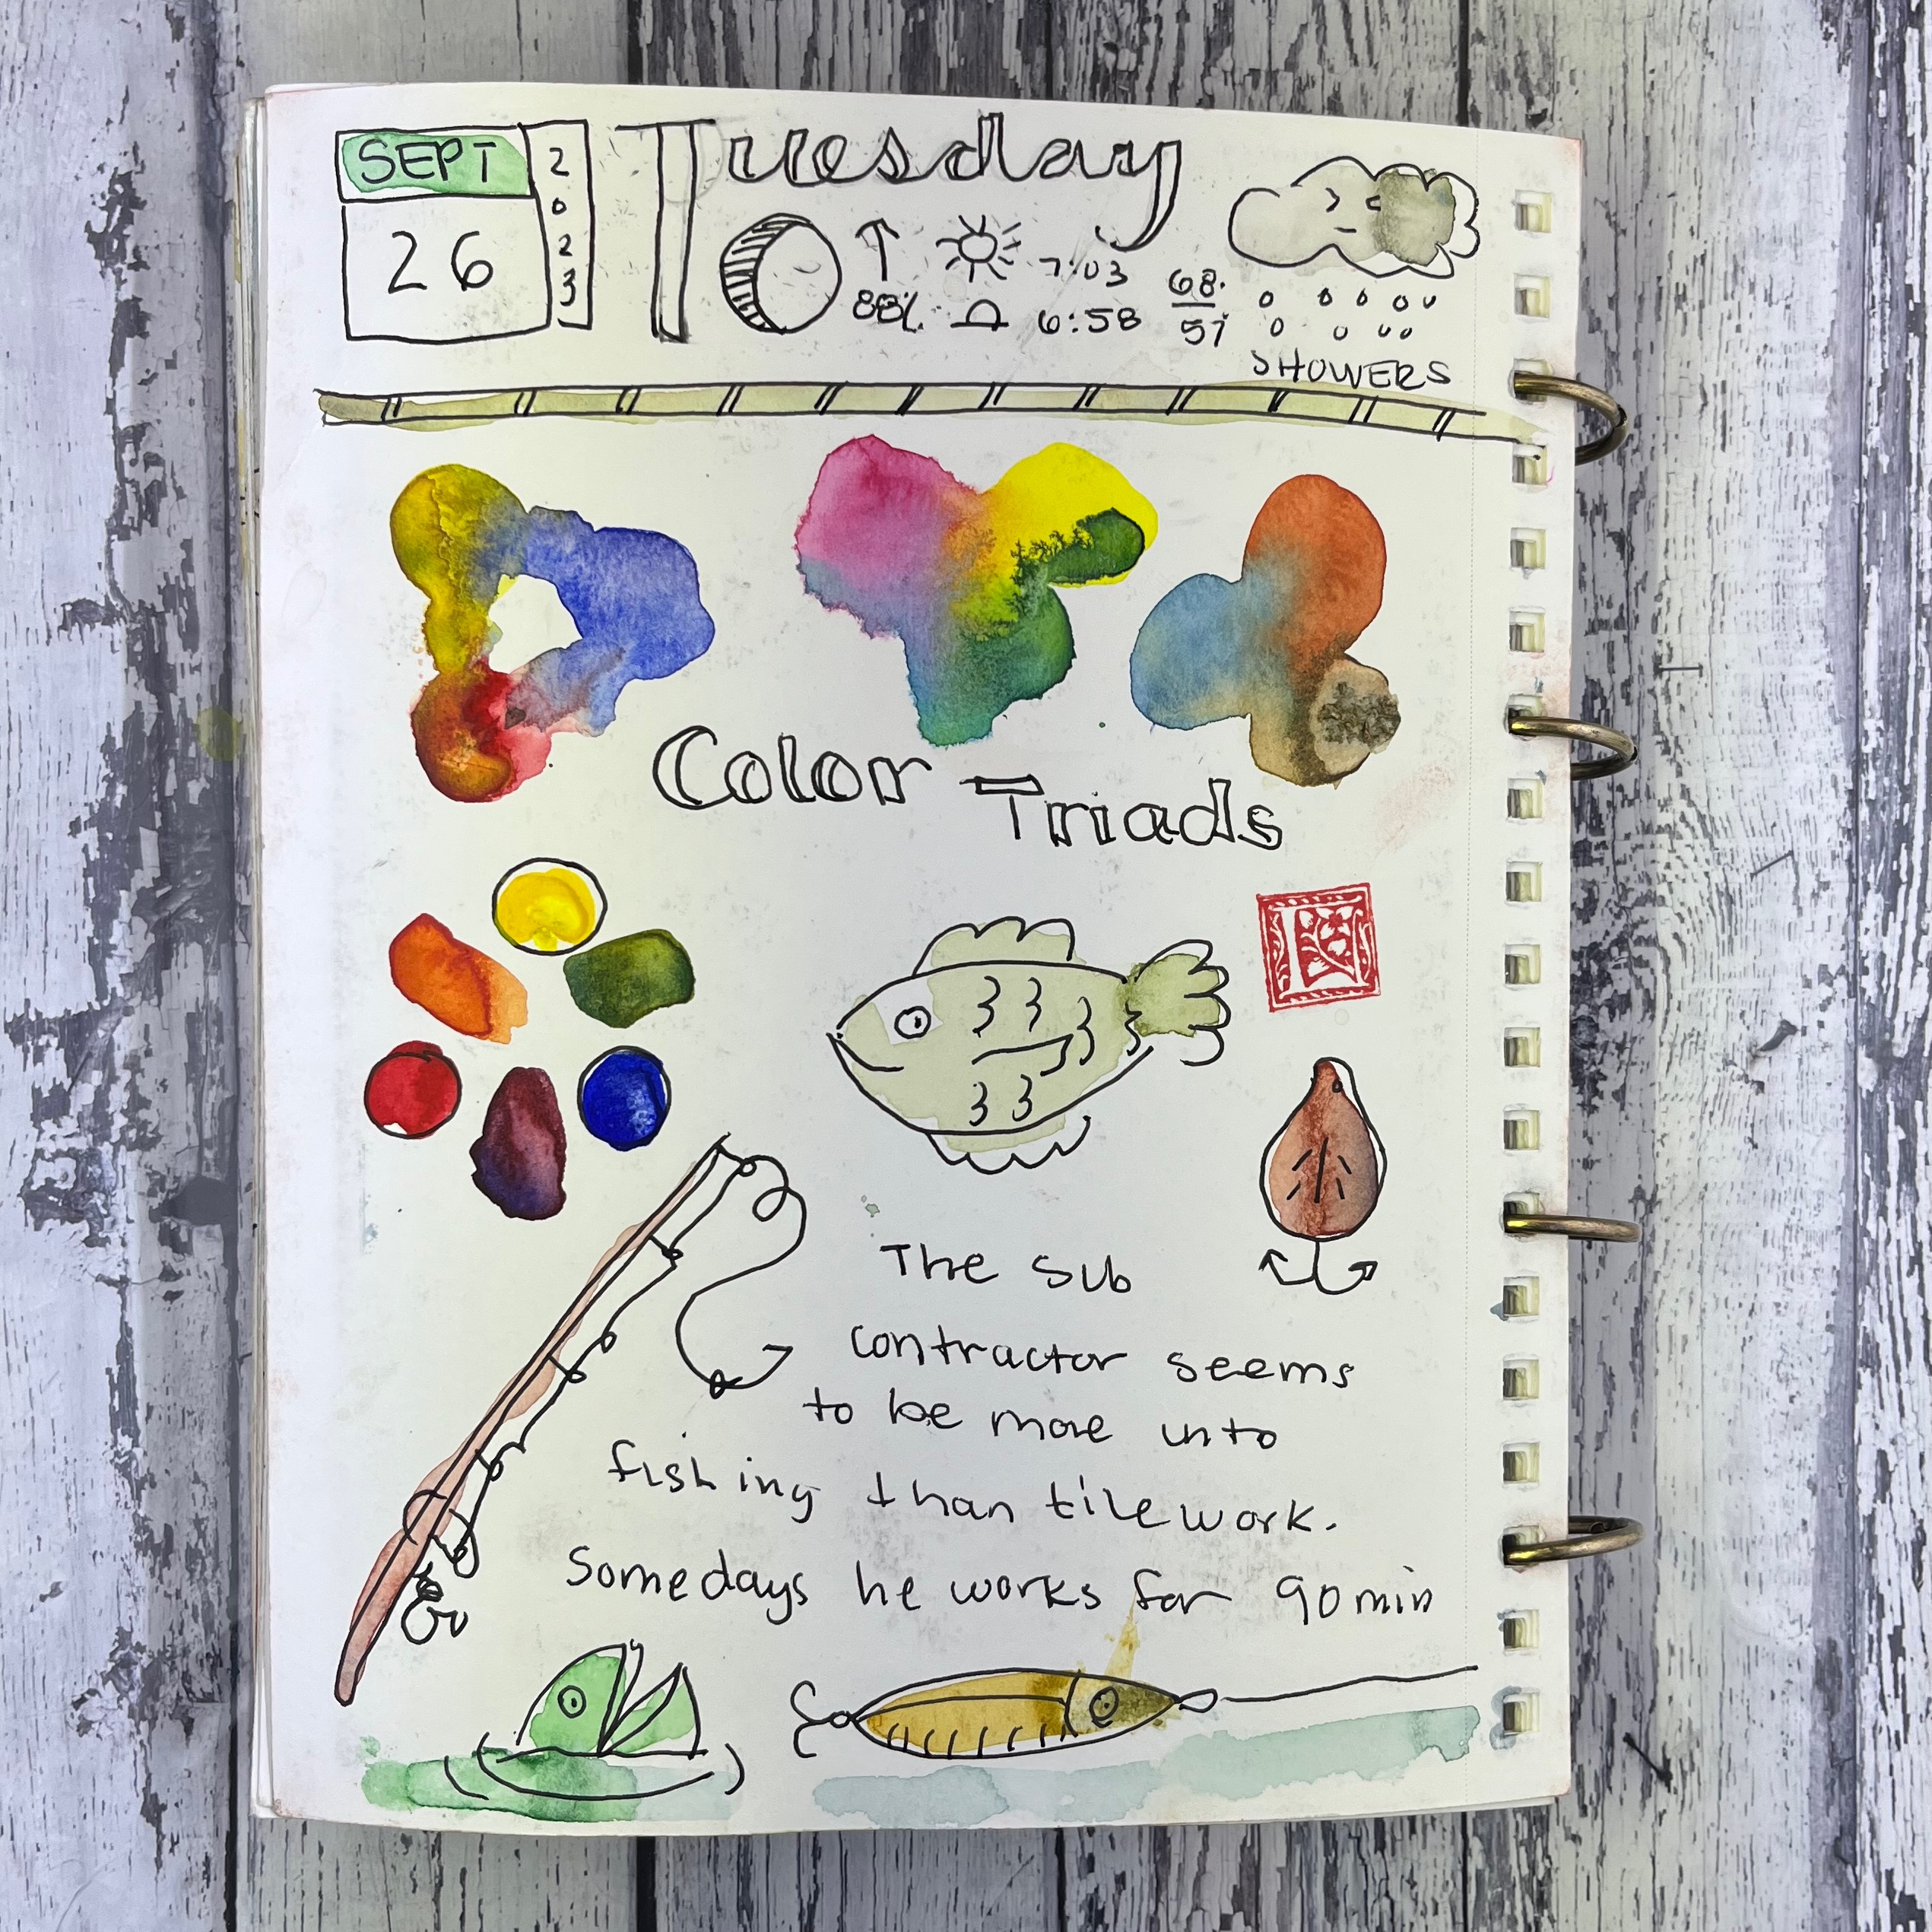 SEPT
26
2023
Tuesday
88%
7:03
6:58
68.
57
SHOWERS
Color Triads
K
The Sub
contractor seems
to be more into
fishing than tilework.
Somedays he works for 90 min